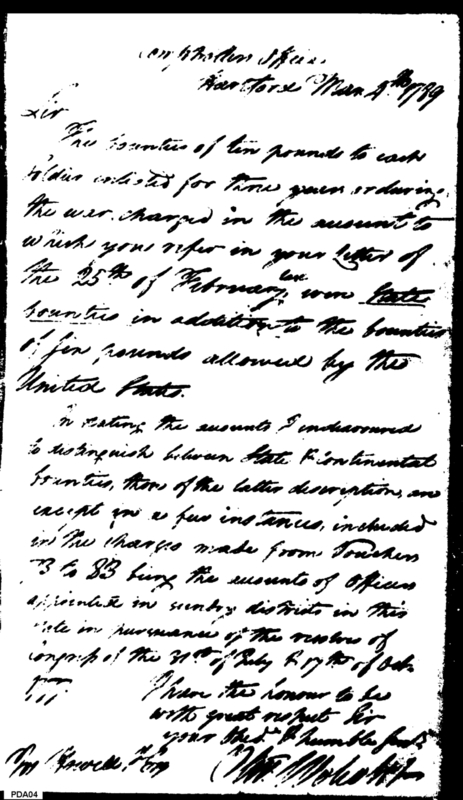 Comptrollers Office
Hartford Mar 4th 1789
Sir
The bounties of ten pounds to each
soldier enlisted for three years or during
the war, charged in the account to
which you refer in your Letter of
the 25th of February last were State
bounties in addition to the bounties
of pounds allowed by the
United States.
In stating the accounts I endeavoured
to distinguish between State & Continental
bounties, those of the latter description, are
except in a few instances, included
in the charges made from Vouchers
73 to 83 being the accounts of Officers
appointed in sundry districts in this
State in pursuance of the resolves of
Congress of the 31st of July & 17th of Octr
I have the honour to be
with great respect Sir
your Obedt & humble Servt
PDA04